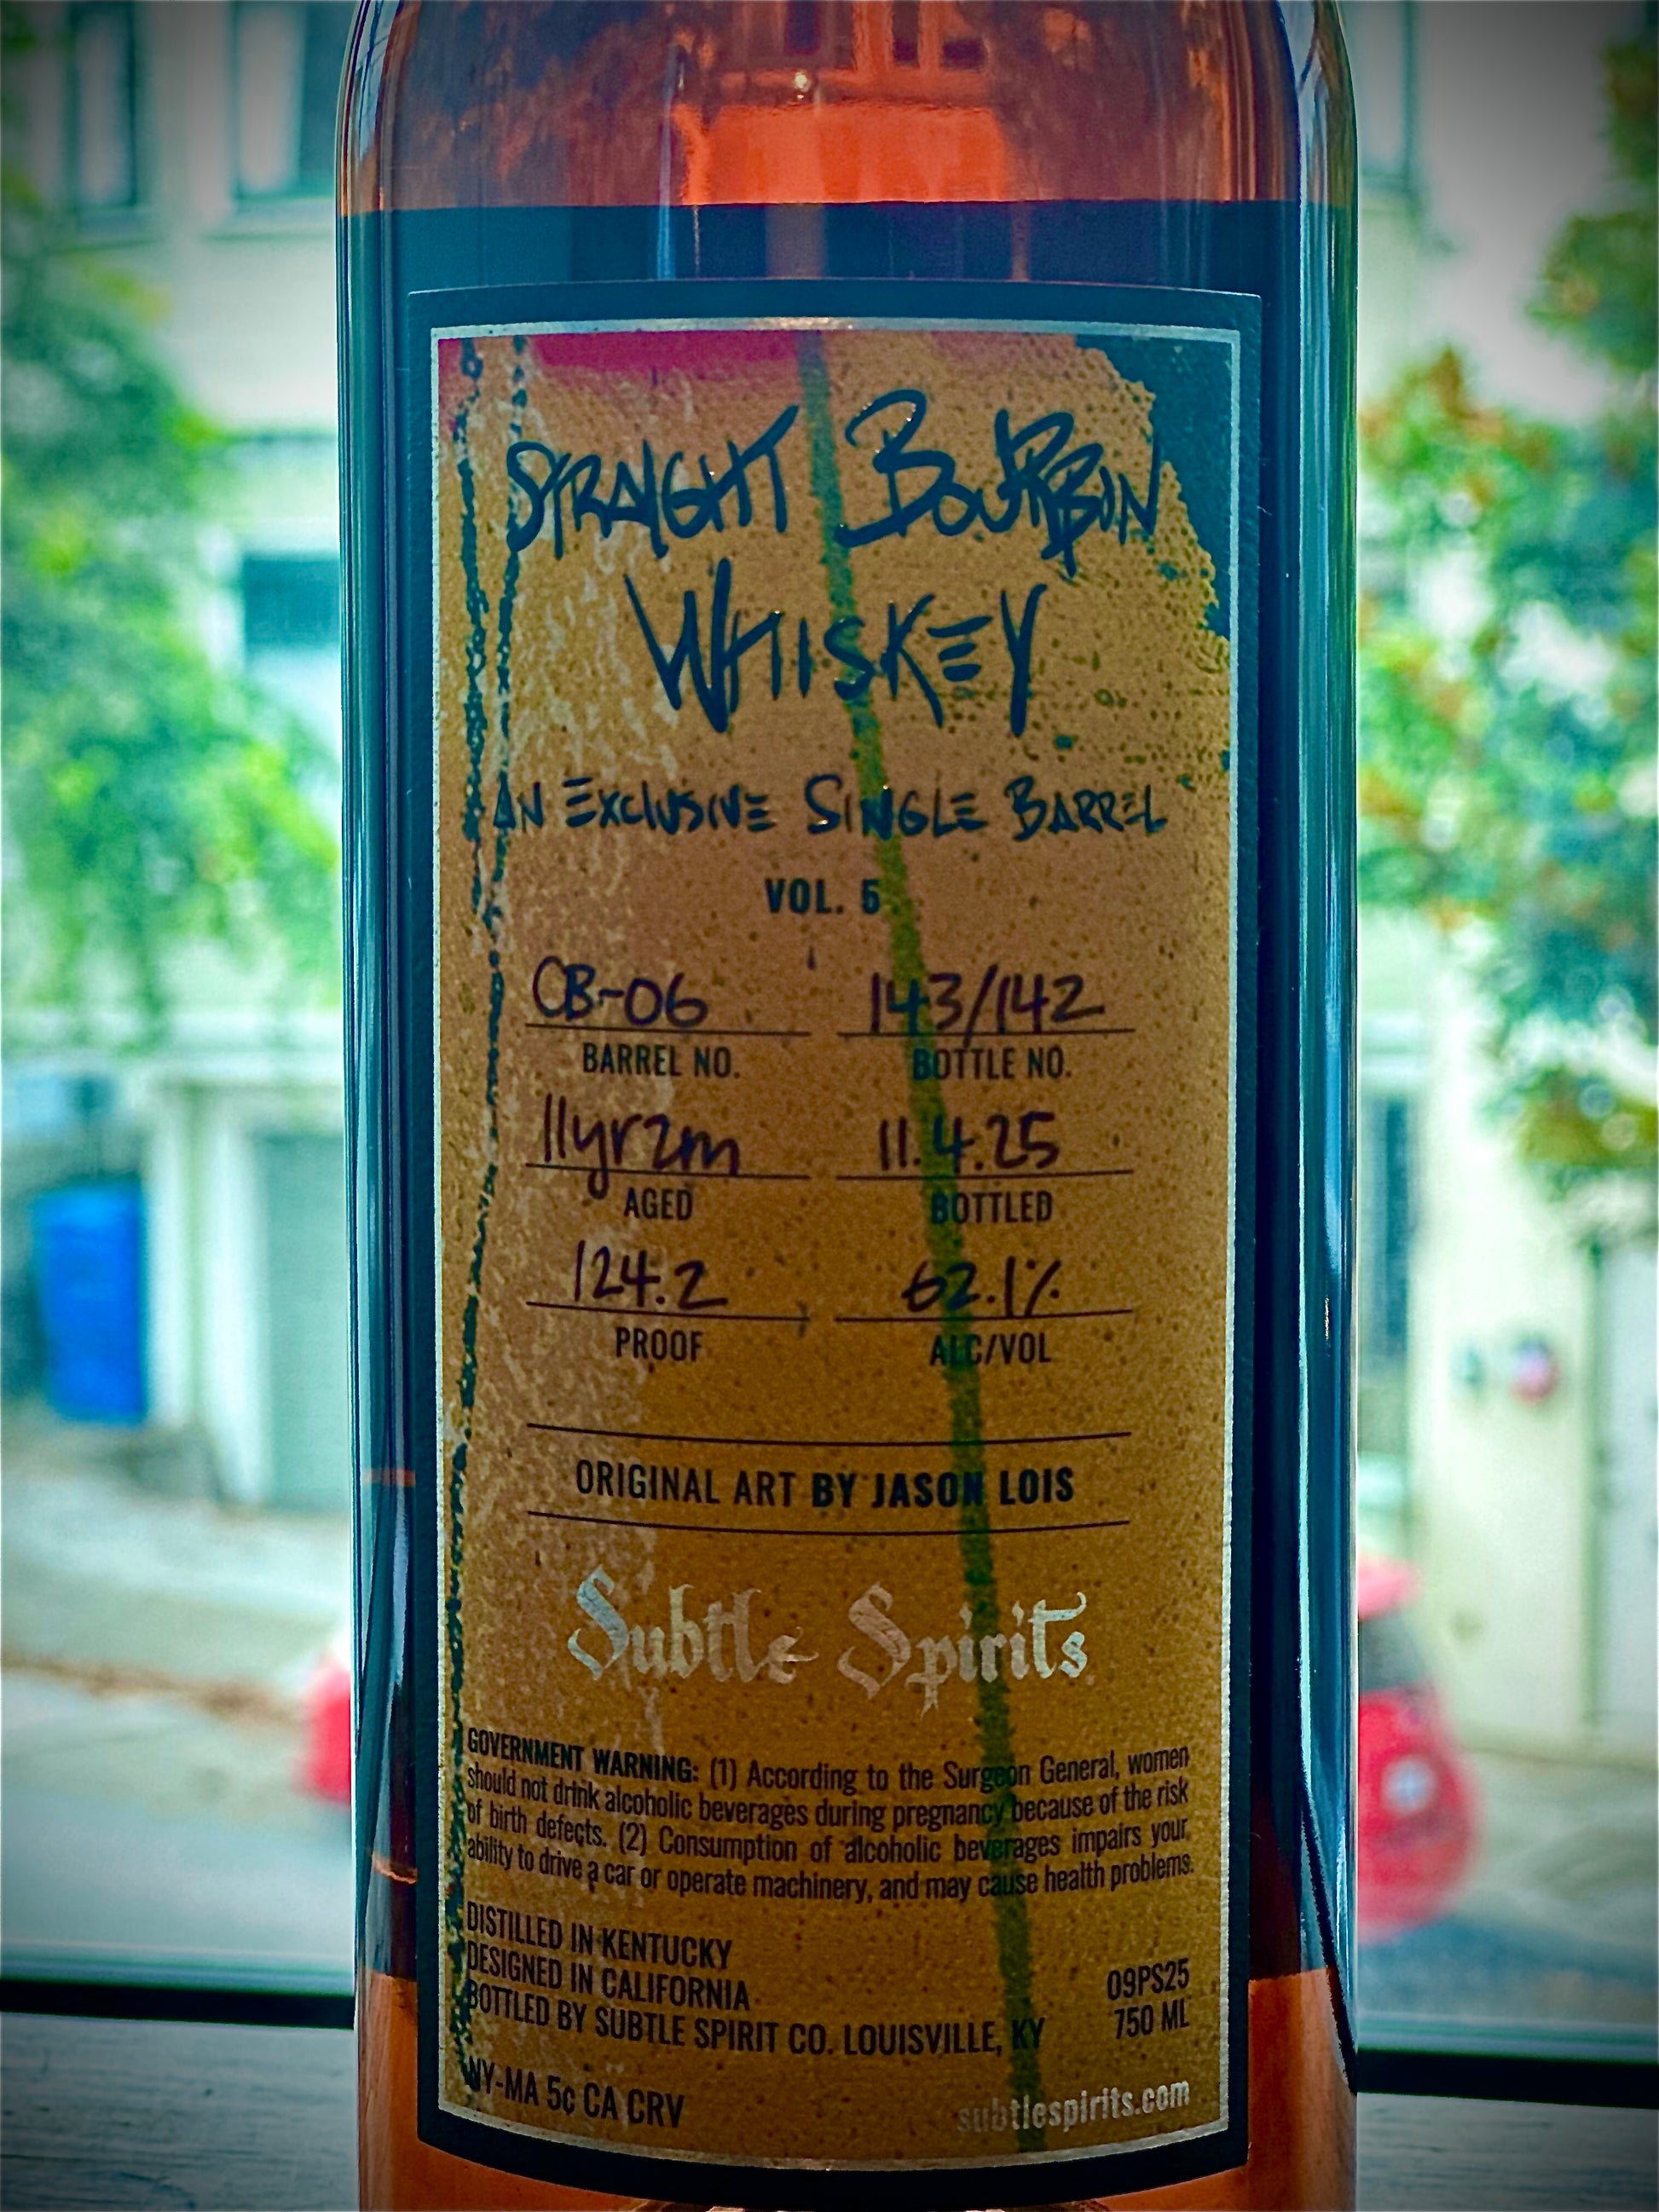 STRAIGHT BOURBON
WHISKEY
AN EXCLUSIVE SINGLE BARREL
VOL. 5
CB-06 143/142
BARREL NO. BOTTLE NO.
11yr2m 11.4.25
AGED BOTTLED
124.2 62.1%
PROOF ALC/VOL
ORIGINAL ART BY JASON LOIS
Subtle Spirits
GOVERNMENT WARNING: (1) According to the Surgeon General, women
should not drink alcoholic beverages during pregnancy because of the risk
of birth defects. (2) Consumption of alcoholic beverages impairs your
ability to drive a car or operate machinery, and may cause health problems.
DISTILLED IN KENTUCKY
DESIGNED IN CALIFORNIA 09PS25
BOTTLED BY SUBTLE SPIRIT CO. LOUISVILLE, KY 750 ML
NY-MA 5c CA CRV subtlespirits.com